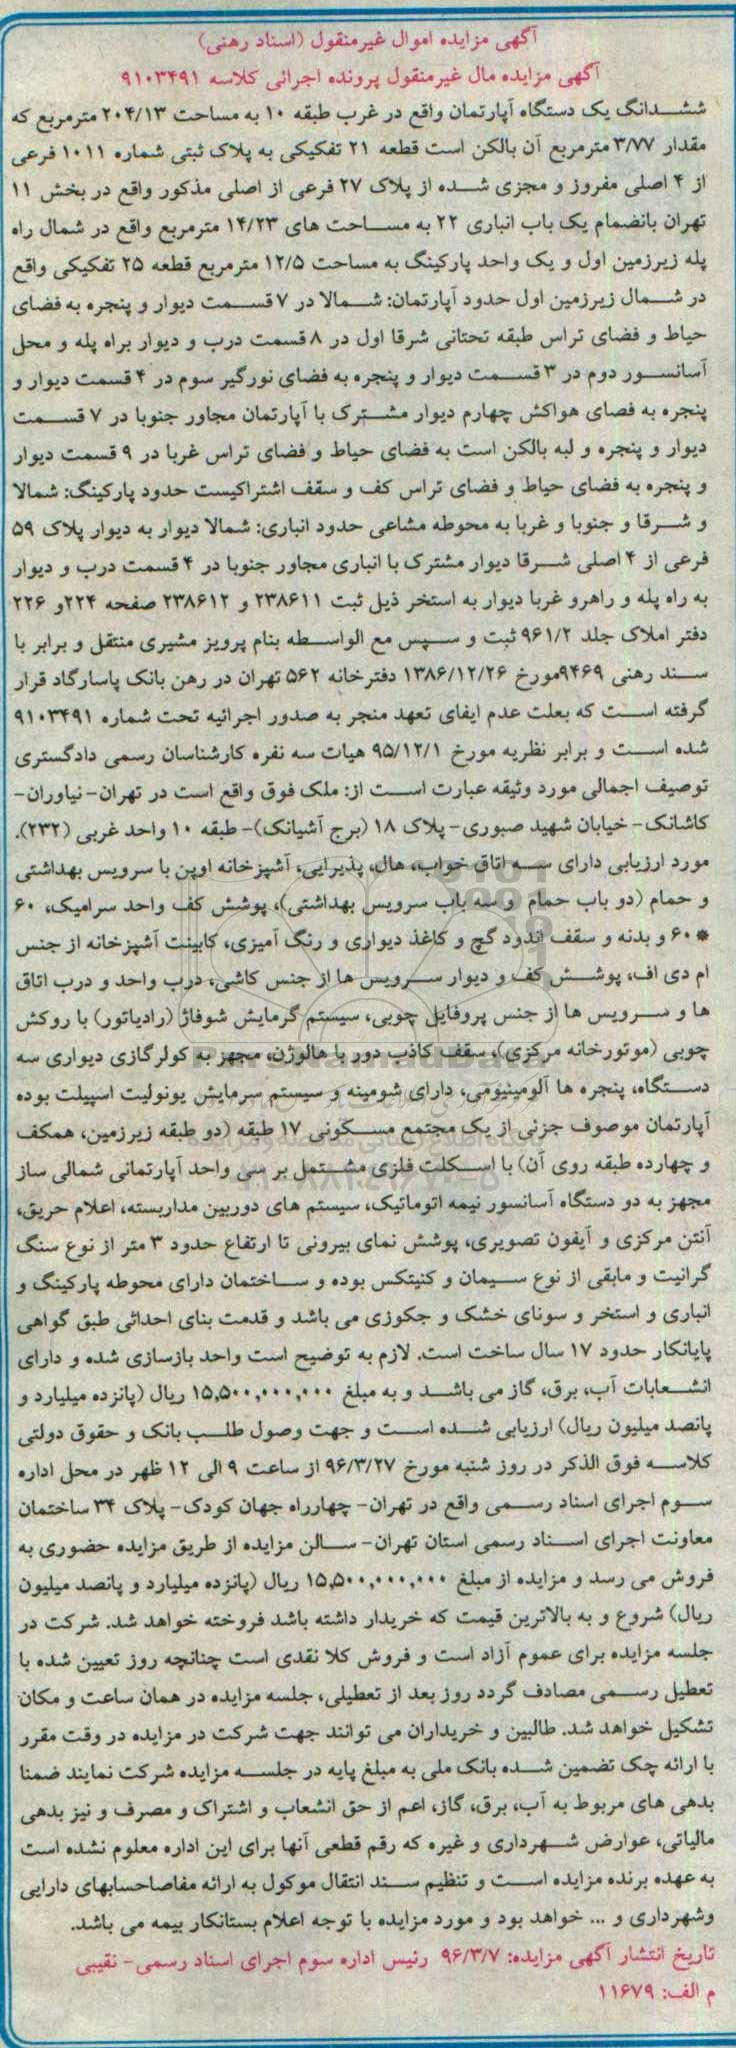 آگهی مزایده اموال غیرمنقول (اسناد رهنی)
آگهی مزایده مال غیرمنقول پرونده اجرائی کلاسه ۹۱۰۳۴۹۱
ششدانگ یک دستگاه آپارتمان واقع در غرب طبقه ۱۰ به مساحت ۲۰۴/۱۳ مترمربع که
مقدار ۳/۷۷ مترمربع آن بالکن است قطعه ۲۱ تفکیکی به پلاک ثبتی شماره ۱۰۱۱ فرعی
از ۴ اصلی مفروز و مجزی شده از پلاک ۲۷ فرعی از اصلی مذکور واقع در بخش ۱۱
تهران بانضمام یک باب انباری ۲۲ به مساحت های ۱۴/۲۳ مترمربع واقع در شمال راه
پله زیرزمین اول و یک واحد پارکینگ به مساحت ۱۲/۵ مترمربع قطعه ۲۵ تفکیکی واقع
در شمال زیرزمین اول حدود آپارتمان: شمالا در ۷ قسمت دیوار و پنجره به فضای
حیاط و فضای تراس طبقه تحتانی شرقا اول در ۸ قسمت درب و دیوار براه پله و محل
آسانسور دوم در ۳ قسمت دیوار و پنجره به فضای نورگیر سوم در ۴ قسمت دیوار و
پنجره به فضای هواکش چهارم دیوار مشترک با آپارتمان مجاور جنوبا در ۷ قسمت
دیوار و پنجره و لبه بالکن است به فضای حیاط و فضای تراس غربا در ۹ قسمت دیوار
و پنجره به فضای حیاط و فضای تراس کف و سقف اشتراکیست حدود پارکینگ: شمالا
و شرقا و جنوبا و غربا به محوطه مشاعی حدود انباری: شمالا دیوار به دیوار پلاک ۵۹
فرعی از ۴ اصلی شرقا دیوار مشترک با انباری مجاور جنوبا در ۴ قسمت درب و دیوار
به راه پله و راهرو غربا دیوار به استخر ذیل ثبت ۲۳۸۶۱۱ و ۲۳۸۶۱۲ صفحه ۲۲۴و ۲۲۶
دفتر املاک جلد ۹۶۱/۲ ثبت و سپس مع الواسطه بنام پرویز مشیری منتقل و برابر با
سند رهنی ۹۴۶۹مورخ ۱۳۸۶/۱۲/۲۶ دفترخانه ۵۶۲ تهران در رهن بانک پاسارگاد قرار
گرفته است که بعلت عدم ایفای تعهد منجر به صدور اجرائیه تحت شماره ۹۱۰۳۴۹۱
شده است و برابر نظریه مورخ ۹۵/۱۲/۱ هیات سه نفره کارشناسان رسمی دادگستری
توصیف اجمالی مورد وثیقه عبارت است از: ملک فوق واقع است در تهران- نیاوران-
کاشانک- خیابان شهید صبوری- پلاک ۱۸ (برج آشیانک)- طبقه ۱۰ واحد غربی (۲۳۲).
مورد ارزیابی دارای سه اتاق خواب، هال، پذیرایی، آشپزخانه اوپن با سرویس بهداشتی
و حمام (دو باب حمام و سه باب سرویس بهداشتی)، پوشش کف واحد سرامیک، ۶۰
* ۶۰ و بدنه و سقف اندود گچ و کاغذ دیواری و رنگ آمیزی، کابینت آشپزخانه از جنس
ام دی اف، پوشش کف و دیوار سرویس ها از جنس کاشی، درب واحد و درب اتاق
ها و سرویس ها از جنس پروفایل چوبی، سیستم گرمایش شوفاژ (رادیاتور) با روکش
چوبی (موتورخانه مرکزی)، سقف کاذب دور با هالوژن، مجهز به کولرگازی دیواری سه
دستگاه، پنجره ها آلومینیومی، دارای شومینه و سیستم سرمایش یونولیت اسپیلت بوده
آپارتمان موصوف جزئی از یک مجتمع مسکونی ۱۷ طبقه (دو طبقه زیرزمین، همکف
و چهارده طبقه روی آن) با اسکلت فلزی مشتمل بر سی واحد آپارتمانی شمالی ساز
مجهز به دو دستگاه آسانسور نیمه اتوماتیک، سیستم های دوربین مداربسته، اعلام حریق،
آنتن مرکزی و آیفون تصویری، پوشش نمای بیرونی تا ارتفاع حدود ۳ متر از نوع سنگ
گرانیت و مابقی از نوع سیمان و کنیتکس بوده و ساختمان دارای محوطه پارکینگ و
انباری و استخر و سونای خشک و جکوزی می باشد و قدمت بنای احداثی طبق گواهی
پایانکار حدود ۱۷ سال ساخت است. لازم به توضیح است واحد بازسازی شده و دارای
انشعابات آب، برق، گاز می باشد و به مبلغ ۱۵,۵۰۰,۰۰۰,۰۰۰ ریال (پانزده میلیارد و
پانصد میلیون ریال) ارزیابی شده است و جهت وصول طلب بانک و حقوق دولتی
کلاسه فوق الذکر در روز شنبه مورخ ۹۶/۳/۲۷ از ساعت ۹ الی ۱۲ ظهر در محل اداره
سوم اجرای اسناد رسمی واقع در تهران- چهارراه جهان کودک- پلاک ۳۴ ساختمان
معاونت اجرای اسناد رسمی استان تهران- سالن مزایده از طریق مزایده حضوری به
فروش می رسد و مزایده از مبلغ ۱۵,۵۰۰,۰۰۰,۰۰۰ ریال (پانزده میلیارد و پانصد میلیون
ریال) شروع و به بالاترین قیمت که خریدار داشته باشد فروخته خواهد شد. شرکت در
جلسه مزایده برای عموم آزاد است و فروش کلا نقدی است چنانچه روز تعیین شده با
تعطیل رسمی مصادف گردد روز بعد از تعطیلی، جلسه مزایده در همان ساعت و مکان
تشکیل خواهد شد. طالبین و خریداران می توانند جهت شرکت در مزایده در وقت مقرر
با ارائه چک تضمین شده بانک ملی به مبلغ پایه در جلسه مزایده شرکت نمایند ضمنا
بدهی های مربوط به آب، برق، گاز، اعم از حق انشعاب و اشتراک و مصرف و نیز بدهی
مالیاتی، عوارض شهرداری و غیره که رقم قطعی آنها برای این اداره معلوم نشده است
به عهده برنده مزایده است و تنظیم سند انتقال موکول به ارائه مفاصاحسابهای دارایی
وشهرداری و ... خواهد بود و مورد مزایده با توجه اعلام بستانکار بیمه می باشد.
تاریخ انتشار آگهی مزایده: ۹۶/۳/۷ رئیس اداره سوم اجرای اسناد رسمی- نقیبی
م الف: ۱۱۶۷۹